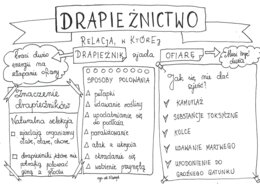 DRAPIEŻNICTWO
RELACJA, W KTÓREJ
DRAPIEŻNIK zjada OFIARĘ
traci dużo
energii na
złapanie ofiary
Musi być
SPOSOBY POLOWANIA
pułapki
udawanie rośliny
upodabnianie się
do podłoża
paraliżowanie
atak z ukrycia
skradanie się
Znaczenie
drapieżników
Naturalna selekcja
zjadają organizmy
stare, chore
drapieżniki które nie
potrafią polować
giną z głodu
Jak się nie dać
zjeść?
KAMUFLAŻ
SUBSTANCJE TOKSYCZNE
KOLCE
UDAWANIE MARTWEGO
UPODOBNIENIE DO
GROŹNEGO GATUNKU